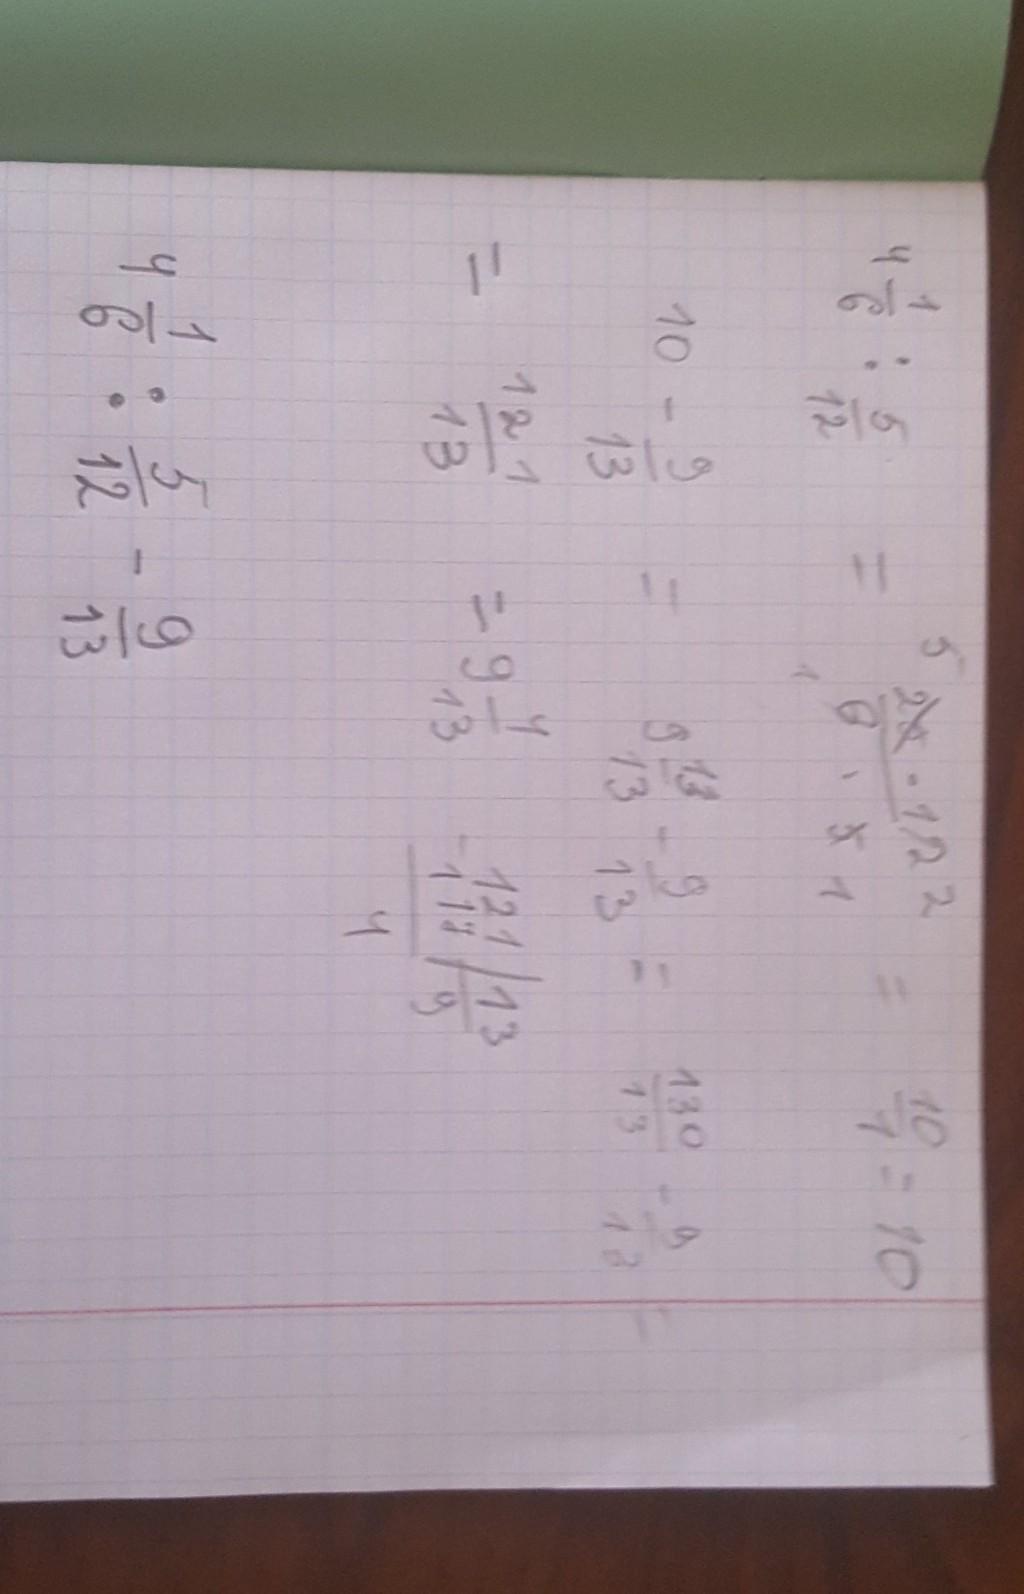 4 1/6 : 5/12 = 5 25 · 12 2 / 1 6 · 5 1 = 10/1 = 10
10 - 9/13 = 9 13/13 - 9/13 = 130/13 - 9/13 =
= 121/13 = 9 4/13
-121 | 13
117 | 9
4
4 1/6 : 5/12 - 9/13